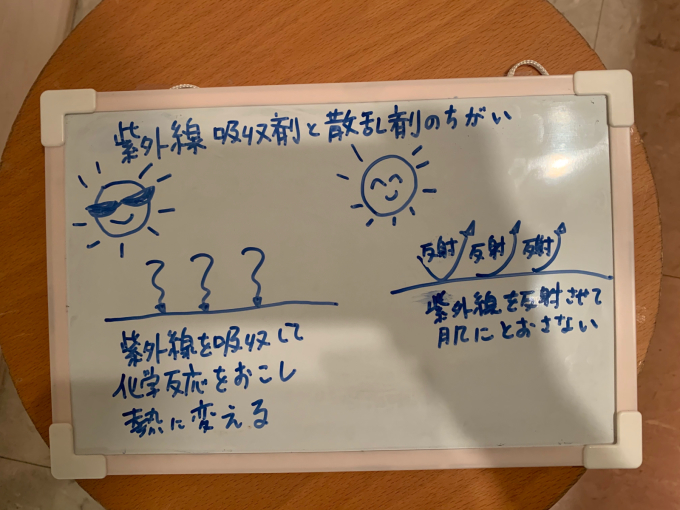 紫外線 吸収剤と散乱剤のちがい
紫外線を吸収して
化学反応をおこし
熱に変える
反射 反射 反射
紫外線を反射させて
肌にとおさない